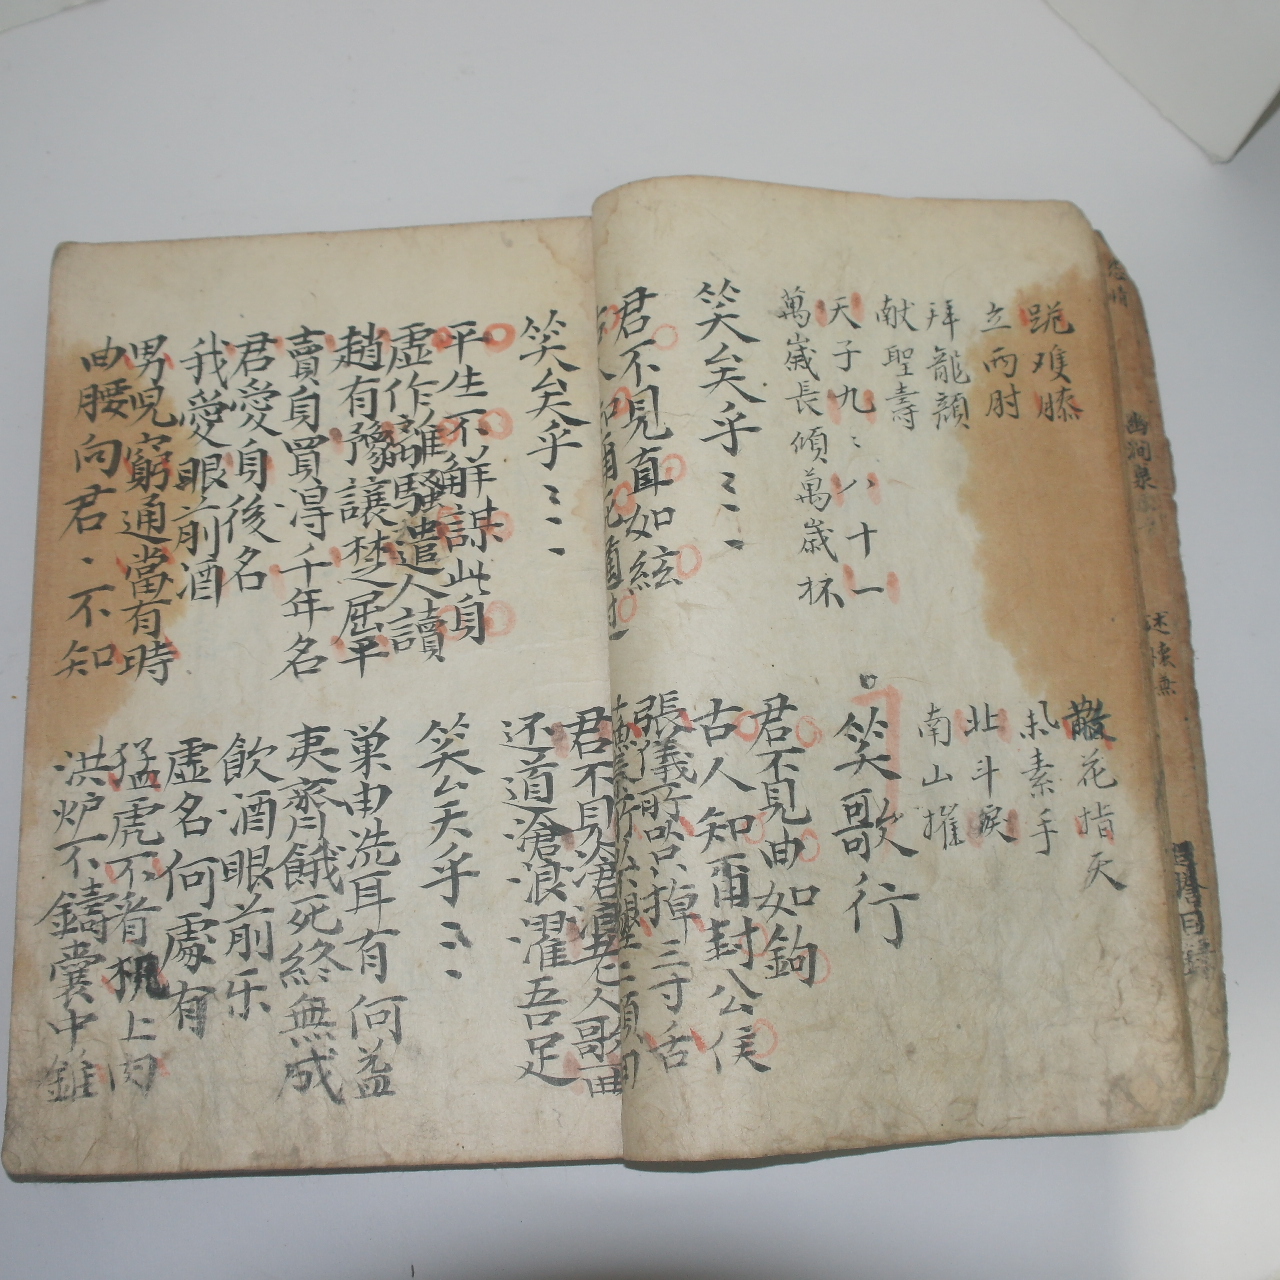 跪难膝
立两肘
散花指天
素手
拜龍顔
献聖壽
北斗戾
南山摧
天子九〻八十一
萬嵗長傾萬歳杯
笑歌行
笑矣乎〻〻〻
君不見曲如鉤
古人知甭封公侯
君不見直如絃
張儀所以只掉三寸舌
笑矣乎〻〻〻
君不見滄浪老人歌一曲
还道滄浪濯吾足
平生不觧謀此身
虚作離騷遣人讀
笑矣乎〻〻〻
趙有豫讓楚屈平
賣身買得千年名
巢由洗耳有何益
夷齊餓死終無成
君愛身後名
我愛眼前酒
飲酒眼前乐
虚名何處有
男児窮通當有時
曲腰向君〻不知
猛虎不看机上肉
洪炉不鑄囊中錐